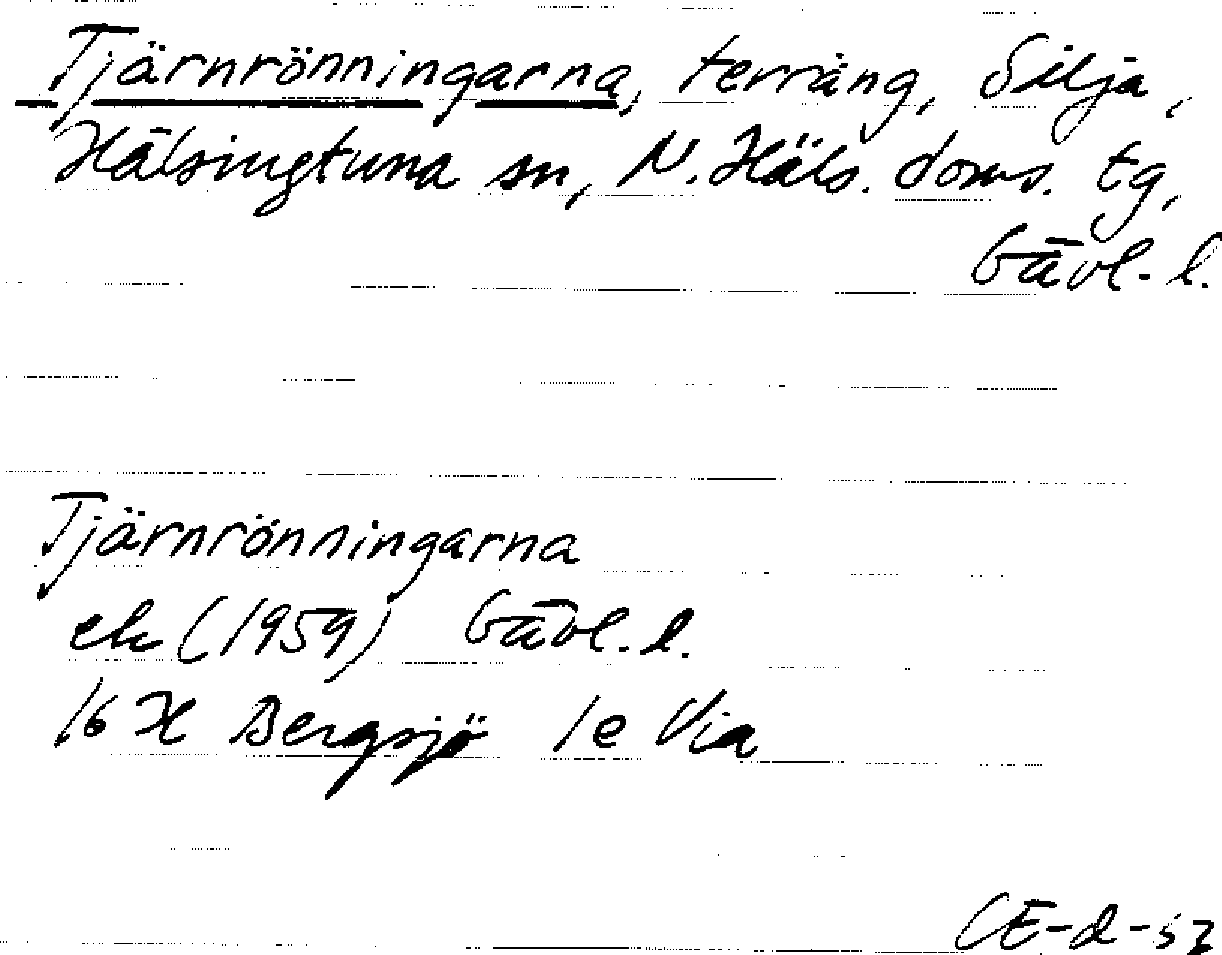 Tjärnrönningarna, terräng, Silja,
Hälsingtuna sn, N. Häls. doms. tg,
Gävl. l.
Tjärnrönningarna
ek (1959) Gävl. l.
16 H Bergsjö 1e Via
CE-d-57